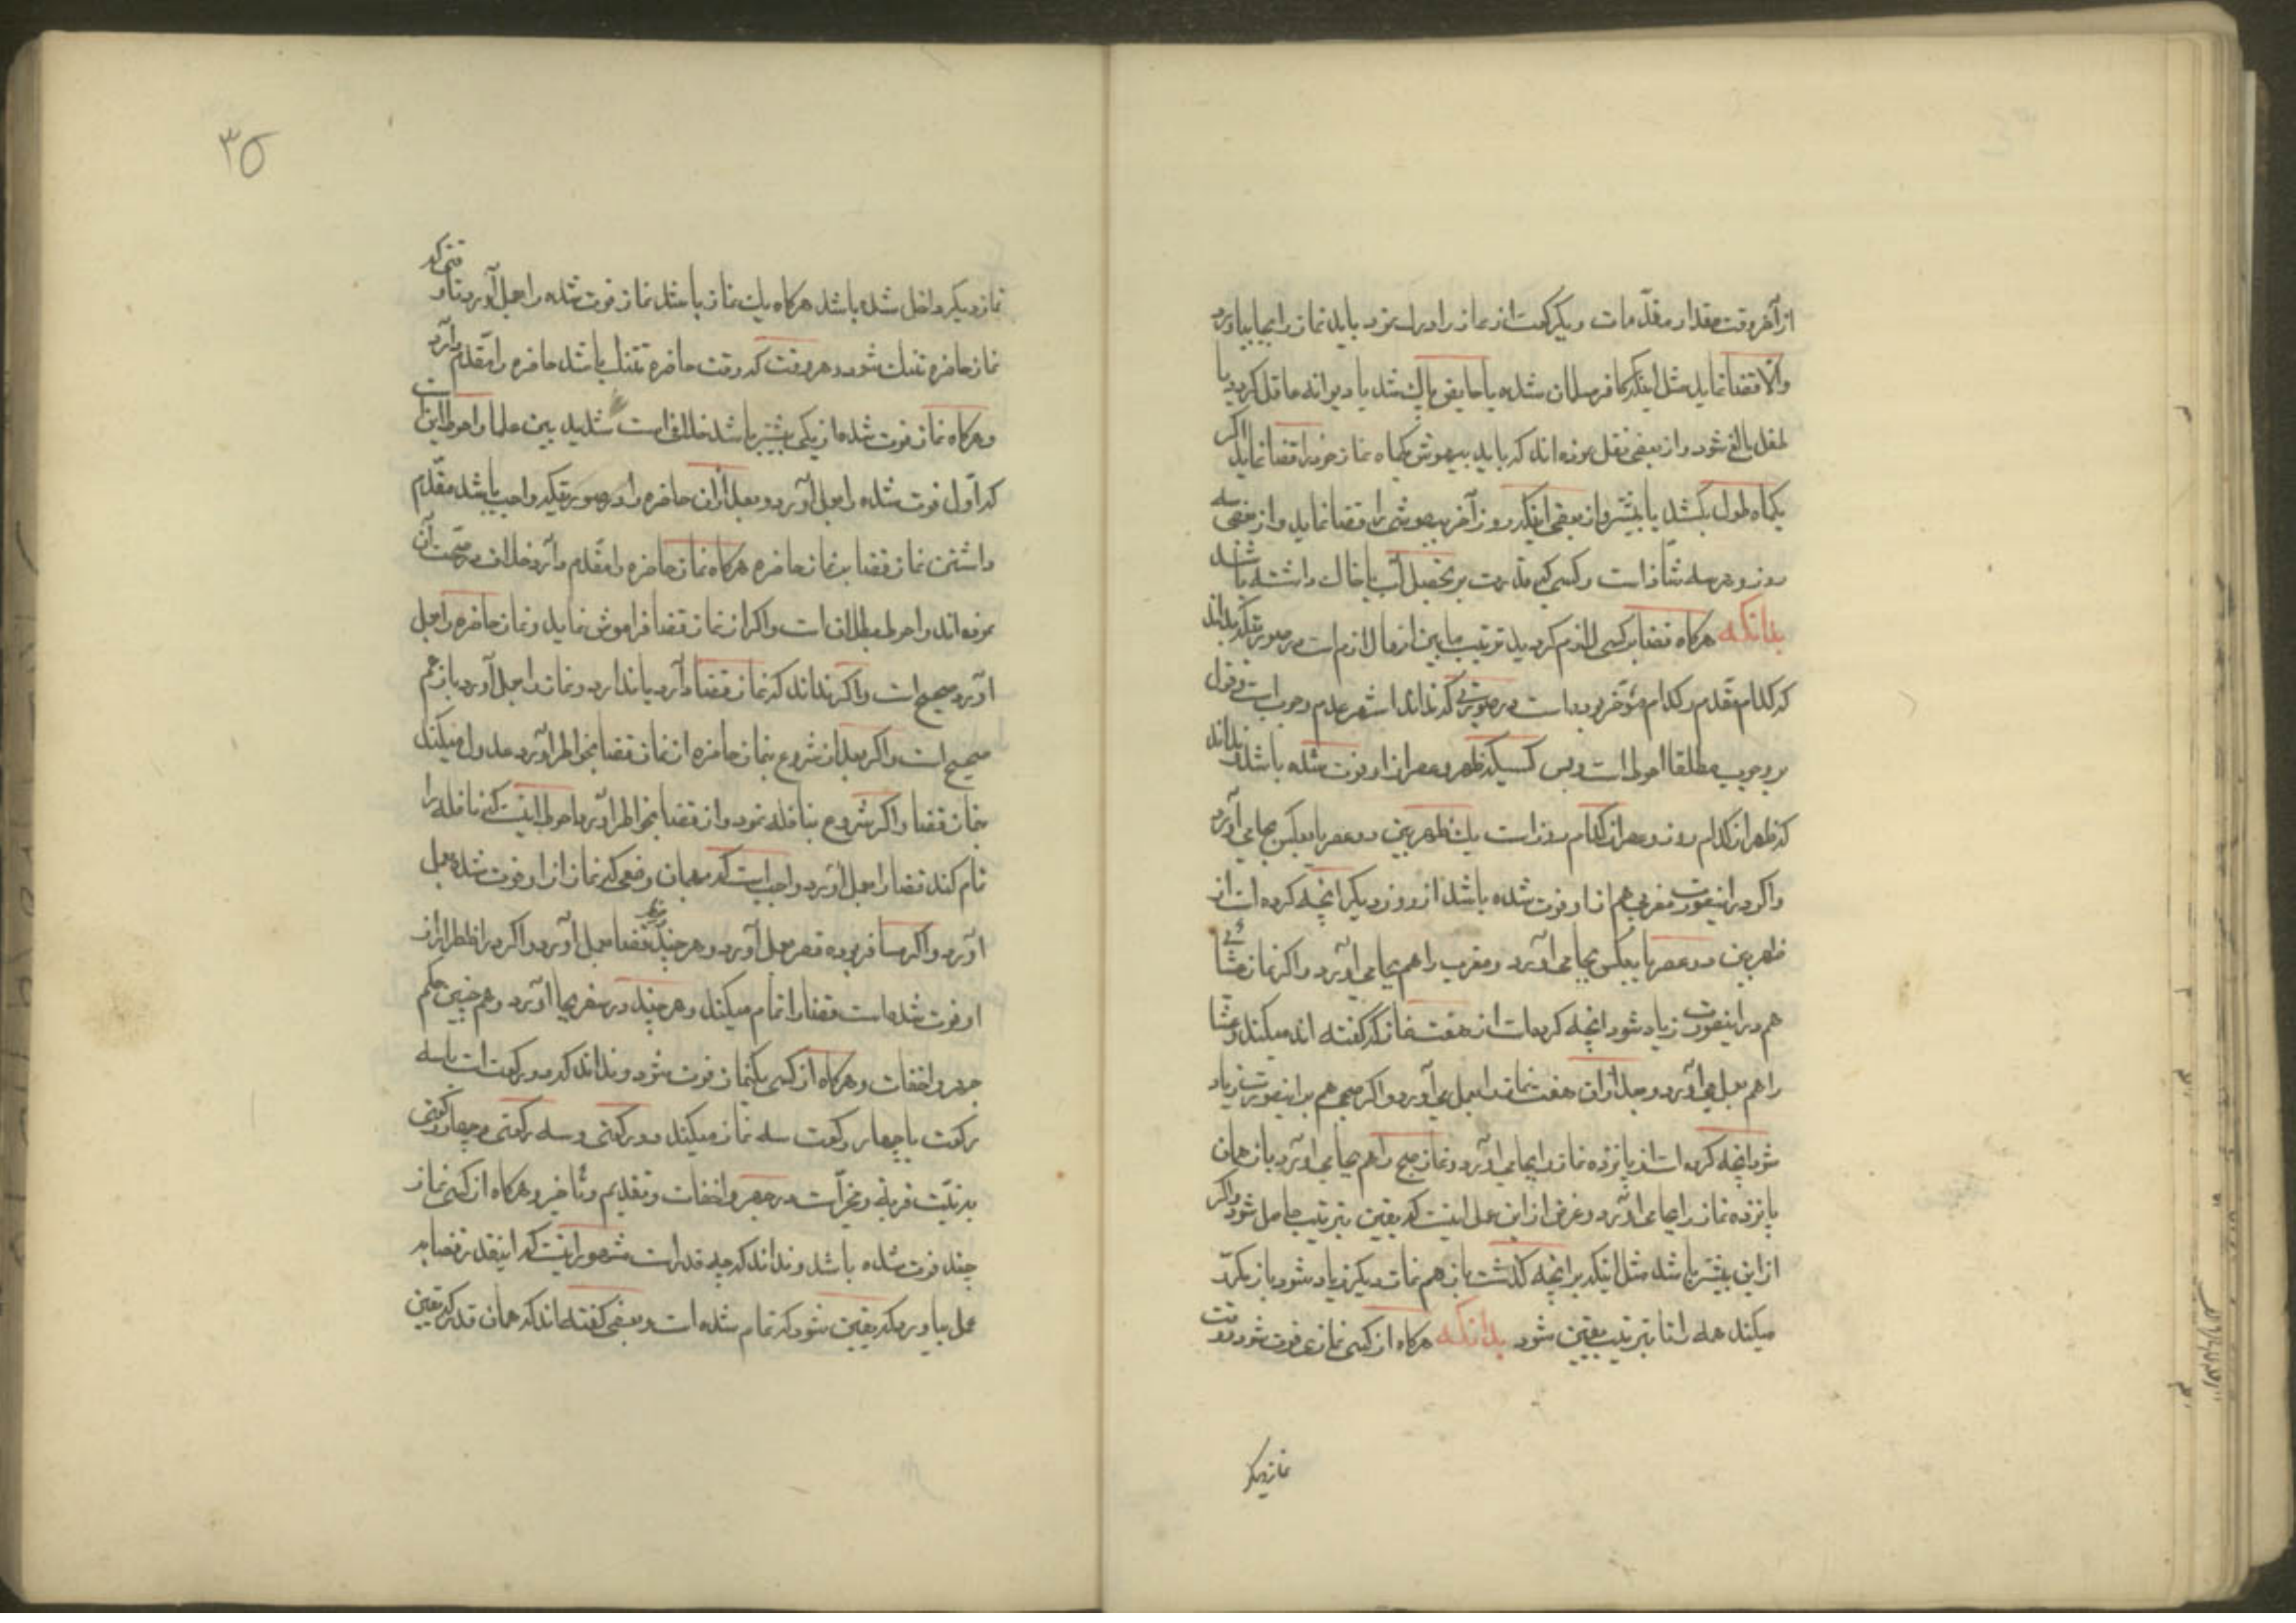 از آخر وقت مقدار مقدّمات و یکرکعت از نماز را ادراک نمود باید نماز را بجا بیاورد
والّا قضا نماید مثل اینکه کافر مسلمان شده یا حایض پاک شد یا دیوانه عاقل کردید یا
طفل بالغ شود و از بعضی نقل نموده اند که باید بیهوش یکماه نماز خود را قضا نماید اکر
یکماه طول بکشد یا بیشتر و از بعضی اینکه روز آخر بیهوشی را قضا نماید و از بعضی سه
روز و هر سه شاذ است و کسی که قدرت بر تحصیل آب یا خاک داشته باشد
بدانکه هرکاه قضا بر کسی لازم کردید ترتیب مابین انها لازم است در صورتیکه بداند
که کدام مقدم و کدام مؤخر بوده است و در صورتی که نداند اشهر عدم وجوب است و قول
بر وجوب مطلقا احوط است و پس کسیکه ظهر و عصر از او فوت شده باشد و نداند
که ظهر از کدام روز و عصر از کدام روز است یک ظهر بین دو عصر یا بعکس بجا می آورد
و اکر در اینصورت مغربی هم از او فوت شده باشد از روز دیکر انچه کرده است از
ظهر بین دو عصر یا بعکس بجا می آورد و مغرب را هم بجا می آورد و اکر نماز عشائی
هم در اینصورت زیاد شود انچه کرده است از هفت نماز که کفته اند میکند و عشا
را هم بعمل می آورد و بعد از آن هفت نماز را بعمل می آورد و اکر صبحی هم بر اینصورت زیاد
شود انچه کرده است از پانزده نماز را بجا می آورد و نماز صبح را هم بجا می آورد باز همان
پانزده نماز را بجا می آورد و غرض از این عمل اینست که یقین بترتیب حاصل شود و اکر
از این بیشتر باشد مثل اینکه بر انچه کذشت باز هم نماز دیکر زیاد شود باز مکرّر
میکند همه را تا بترتیب یقین شود بدانکه هرکاه از کسی نمازی فوت شود و وقت
نماز دیکر
۳۵
نماز دیکر داخل شده باشد هرکاه یک نماز باشد نماز فوت شده را بعمل آورد تا وقتی که
نماز حاضره تنک شود و هر وقت که وقت حاضره تنک باشد حاضره را مقدّم دارد
و هرکاه نماز فوت شده از یکی بیشتر باشد خلاف است شدید بین علما و احوط این است
که اوّل فوت شده را بعمل آورد و بعد از آن حاضره را و در صورتیکه واجب باشد مقدّم
داشتن نماز قضا بر نماز حاضره هرکاه نماز حاضره را مقدّم دارد خلاف در صحّت آن
نموده اند و احوط بطلان است و اکر از نماز قضا فراموش نماید و نماز حاضره را بعمل
آورد صحیح است و اکر نداند که نماز قضا دارد یا ندارد و نماز را بعمل آورد باز هم
صحیح است و اکر بعد از شروع بنماز حاضره از نماز قضا بخواطر آورد عدول میکند
بنماز قضا و اکر شروع بنافله نمود و از قضا بخواطر آورد احوط اینست که نافله را
تمام کند قضا را بعمل آورد و واجب است که بهمان وضعی که نماز از او فوت شده بعمل
آورد و اکر مسافر بوده قصر بعمل آورد و هر چند در حضر قضا بعمل آورد و اکر در حضر از
او فوت شده است قضا را تمام میکند و هر چند در سفر بجا آورد و هم چنین حکم
جهر و اخفات و هرکاه از کسی یکنماز فوت شود و نداند که دو رکعت است یا سه
رکعت یا چهار رکعت سه نماز میکند دو رکعتی و سه رکعتی و چهار رکعتی
به نیّت قربة و مخیّر است در جهر و اخفات و تقدیم و تأخیر و هرکاه از کسی نماز
چند فوت شده باشد و نداند که چه قدر است مشهور اینست که اینقدر قضا به
عمل بیاورد که یقین شود که تمام شده است و بعضی کفته اند که همان قدر که یقین